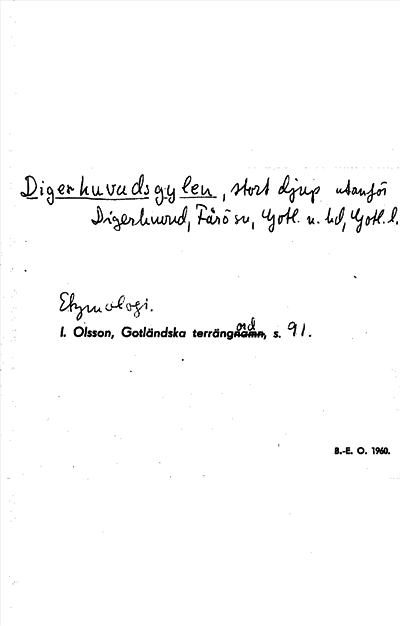 Digerhuvudsgylen, stort djup utanför
Digerhuvud, Fårö sn, Gotl. n. hd, Gotl. l.
Etymologi.
I. Olsson, Gotländska terrängord, s. 91.
B.-E. O. 1960.